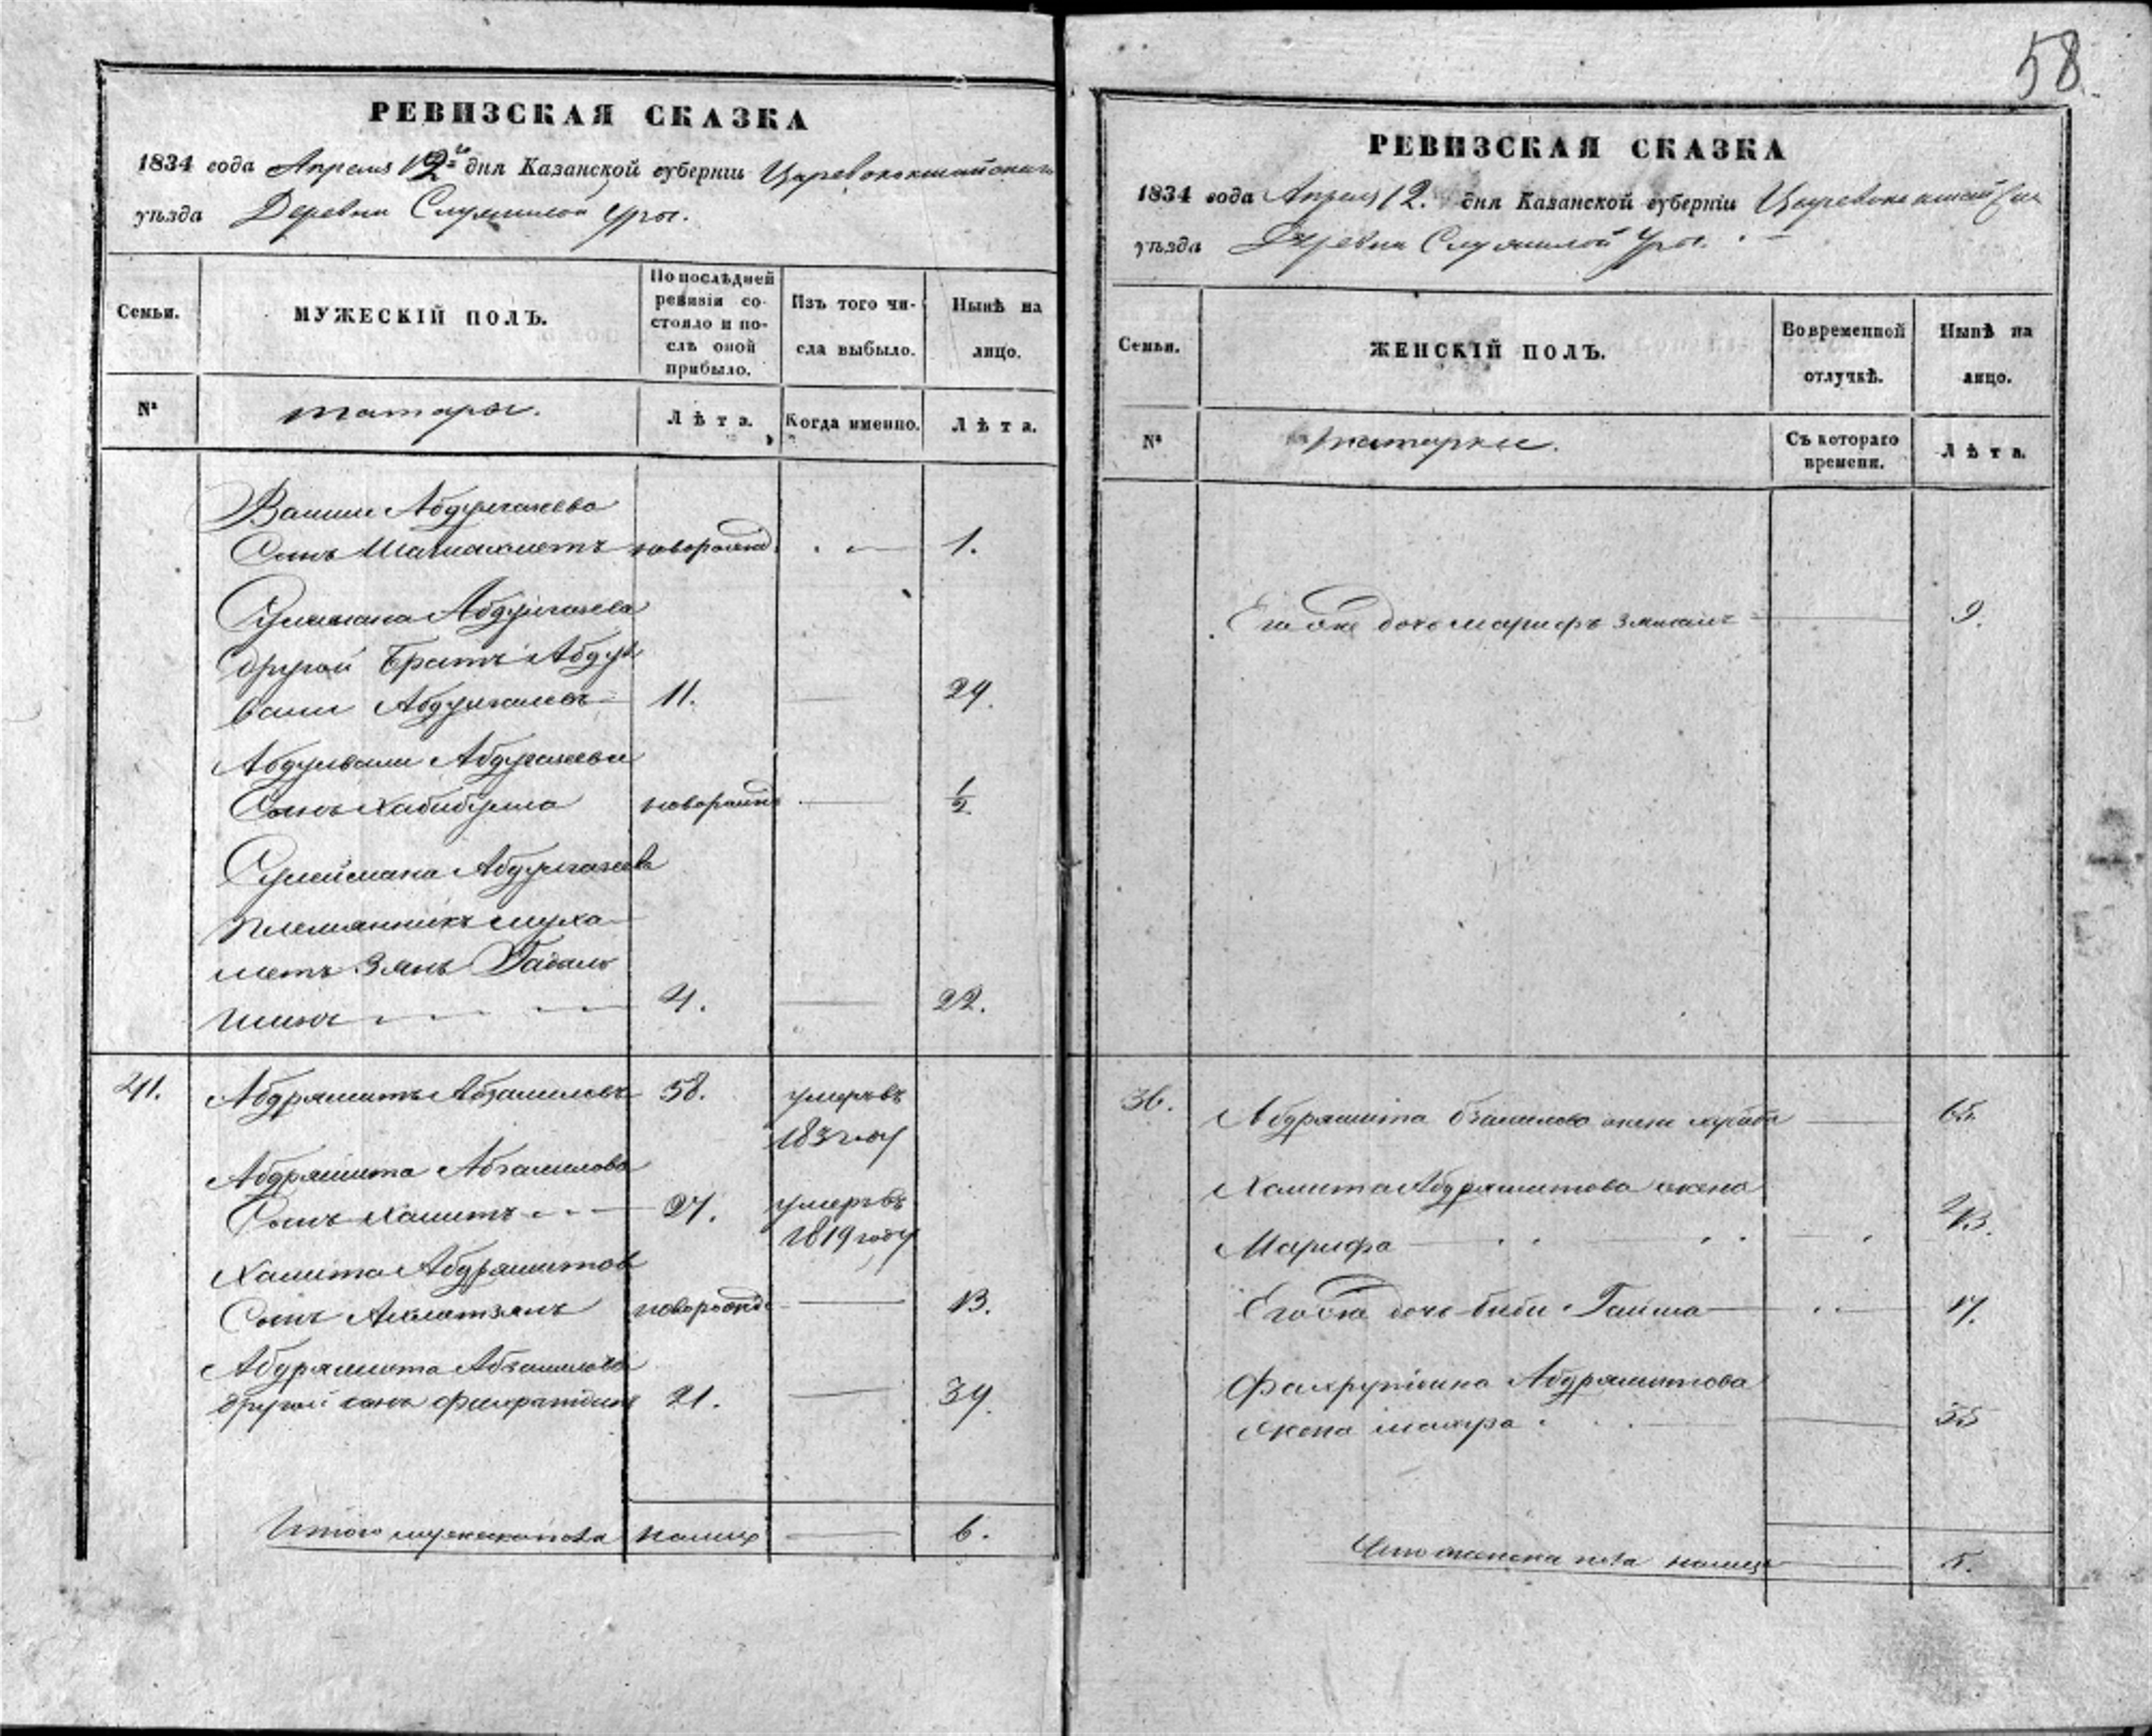 РЕВИЗСКАЯ СКАЗКА
1834 года Апреля 12го дня Казанской губерніи Царевококшайскаго
уѣзда Деревни Служилой Уры.
Семьи.
МУЖЕСКІЙ ПОЛЪ.
По послѣдней ревизіи состояло и послѣ оной прибыло.
Изъ того числа выбыло.
Нынѣ на лицо.
№
татары.
Лѣта.
Когда именно.
Лѣта.
Вагапи Абдулгазеева
Сынъ новорожд. 1.
Сулеймана Абдулгазеева
другой Братъ Абдул
вали Абдулгазеевъ 11. 29.
Абдулвали Абдулгазеева
Сынъ Хабибулла новорожд 1/2
Сулеймана Абдулгазеева
Племянникъ Муха
метъ Зянъ
4. 22.
41. Абдряшитъ Абзалиловъ 58. умеръ въ
183 году
Абдряшита Абзалилова
Сынъ Хамитъ 27. умеръ въ
1819 году
Хамита Абдряшитова
Сынъ Ахметзянъ новорожд 13.
Абдряшита Абзалилова
другой сынъ Фахратдинъ 21. 39.
Итого мужеска пола налицо 6.
58
РЕВИЗСКАЯ СКАЗКА
1834 года Апреля 12. дня Казанской губерніи Царевококшайскаго
уѣзда Деревни Служилой Уры.
Семьи.
ЖЕНСКІЙ ПОЛЪ.
Во временной отлучкѣ.
Нынѣ на лицо.
№
татарки.
Съ котораго времени.
Лѣта.
Его дочь 9.
36. Абдряшита жена 65.
Хамита Абдряшитова жена
Марифа 43.
Его дочь Биби Гайша 17.
Фахрутдина Абдряшитова
жена 35
Итого женска пола налицо 5.